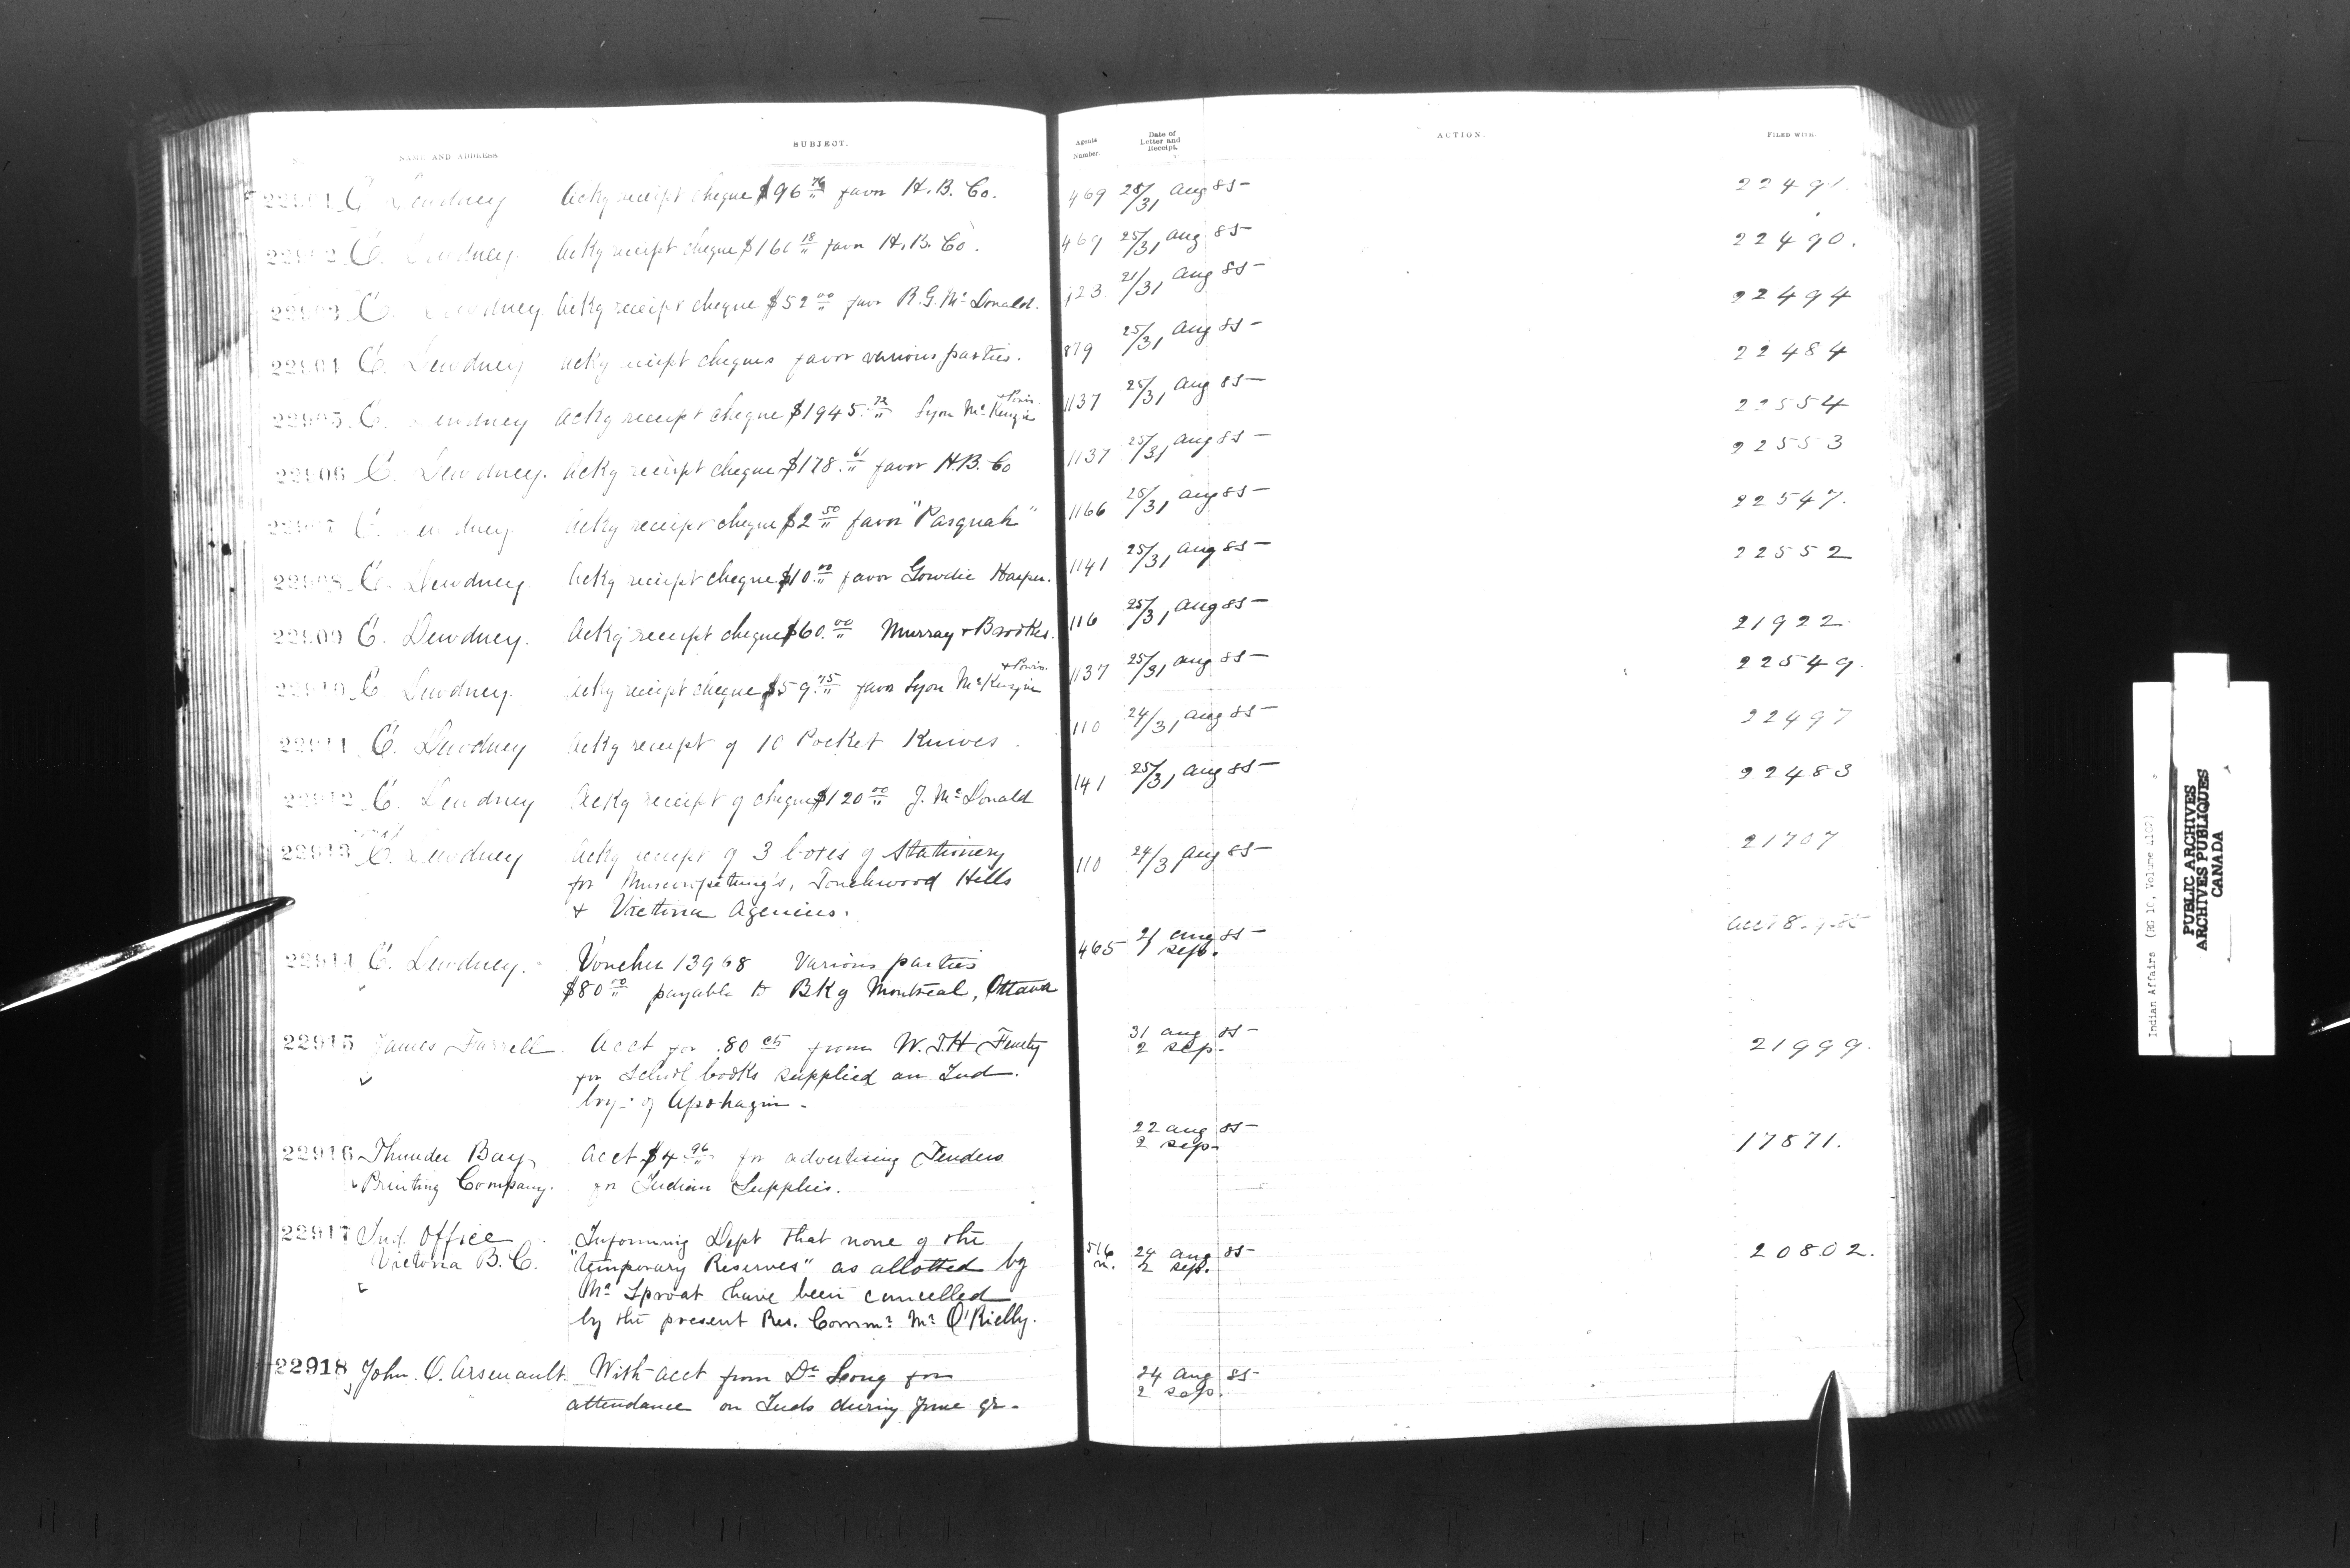 No. NAME AND ADDRESS. SUBJECT. Agents Number. Date of Letter and Receipt. ACTION. FILED WITH.
22901 E. Dewdney Ackg receipt cheque $96 76/" favor H.B. Co. 469 25/31 Aug 85 22491.
22902 E. Dewdney. Ackg receipt cheque $161 18/" favor H.B. Co. 469 25/31 Aug 85 22490.
22903 E. Dewdney. Ackg receipt cheque $52 00/" favor R.G. McDonald. 123. 21/31 Aug 85 22494
22904 E. Dewdney Ackg receipt cheques favor various parties. 879 25/31 Aug 85 22484
22905. E. Dewdney Ackg receipt cheque $1945.72/" Lyon McKenzie + Powis 1137 25/31 Aug 85 22554
22906 E. Dewdney. Ackg receipt cheque $178.61/" favor H.B. Co 1137 25/31 Aug 85 22553
22907 E. Dewdney Ackg receipt cheque $2 50/" favor "Pasquah" 1166 25/31 Aug 85 22547.
22908. E. Dewdney. Ackg receipt cheque $10.00/" favor Gowdie Harper. 1141 25/31 Aug 85 22552
22909 E. Dewdney. Ackg receipt cheque $60.00/" Murray + Brookes. 116 25/31 Aug 85 21922.
22910 E Dewdney. Ackg receipt cheque $59.75/" favor Lyon McKenzie + Powis. 1137 25/31 Aug 85 22549.
22911 E. Dewdney Ackg receipt of 10 Pocket Knives. 110 24/31 Aug 85 22497
22912 E. Dewdney Ackg receipt of cheque $120 00/" J. McDonald 141 25/31 Aug 85 22483
22913 E. Dewdney Ackg receipt of 3 boxes of Stationery 110 24/31 Aug 85 21707
for Muscowpetung's, Touchwood Hills
+ Victoria Agencies.
22914 E. Dewdney. Voucher 13968 Various parties 465 21 Aug 85
1 Sep.
$80 00/" payable to Bk of Montreal, Ottawa
22915 James Farrell Acct for .80 cts from W.T.H Fenety 31 Aug 85 21999.
2 Sep.
for School books supplied an Ind.
boy of Apohaqui.
22916 Thunder Bay Acct $4 96/" for advertising Tenders 22 Aug 85 17871.
2 Sep.
Printing Company. for Indian Supplies.
22917 Ind. Office Informing Dept that none of the
Victoria B.C. "Temporary Reserves" as allotted by 24 Aug 85 20802.
2 Sep.
Mr Sproat have been cancelled
by the present Res. Commr Mr O'Rielly.
22918 John. O. Arsenault. With acct from Dr Long for 24 Aug 85
2 Sep.
attendance on Inds during June qr.
Indian Affairs (RG 10, Volume
PUBLIC ARCHIVES
ARCHIVES PUBLIQUES
CANADA